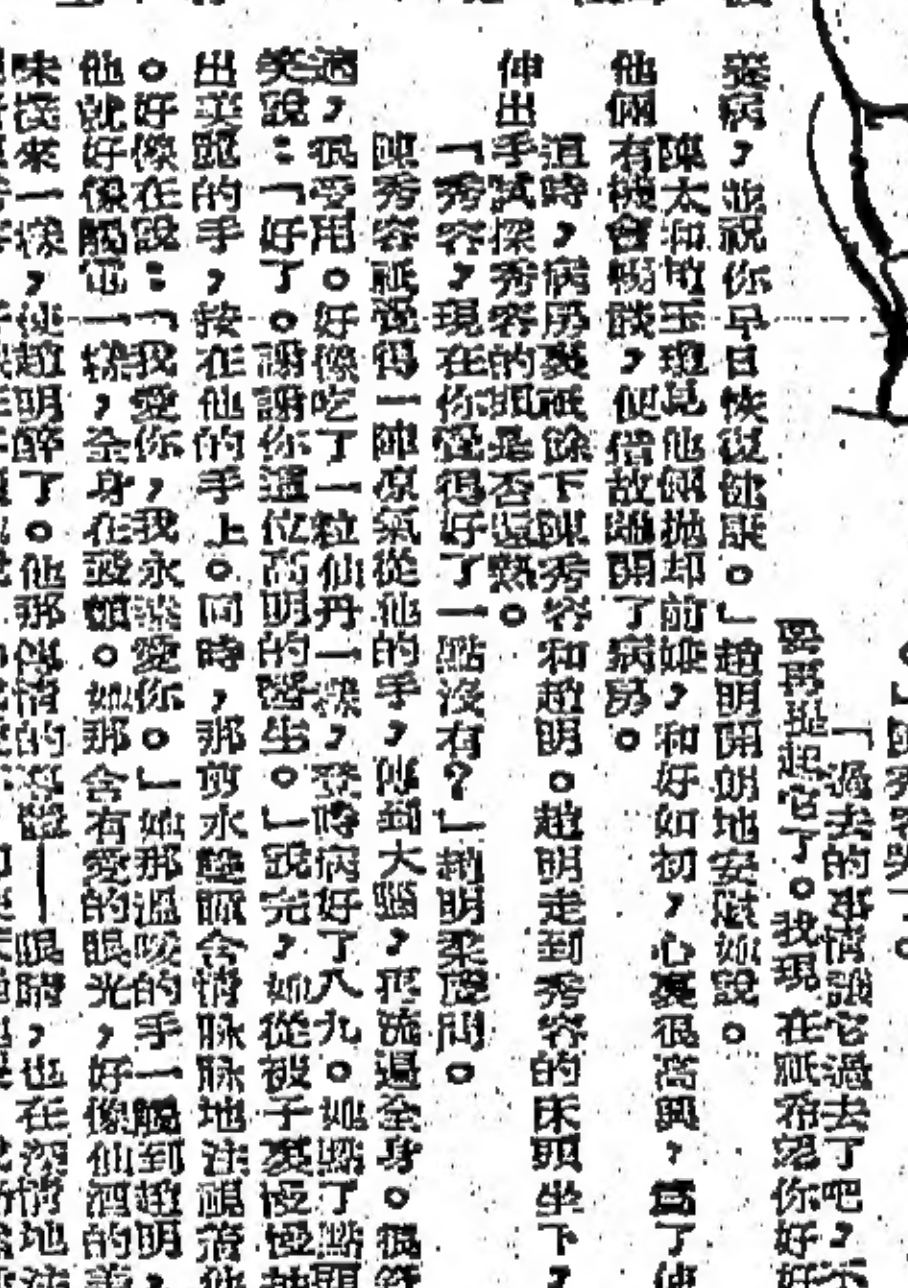 。」陳秀容哭了。
「過去的事情讓它過去了吧,不
要再提起它了。我現在祇希望你好好
養病,並祝你早日恢復健康。」趙明開朗地安慰她說。
陳太和敏玉現見他倆拋却前嫌,和好如初,心裏很高興,爲了使
他倆有機會暢談,便借故離開了病房。
這時,病房裏祇餘下陳秀容和趙明。趙明走到秀容的床頭坐下,
伸出手試探秀容的額是否還熱。
「秀容,現在你覺得好了一點沒有?」趙明柔聲問。
陳秀容祇覺得一陣凉氣從他的手,傳到大腦,再流遍全身。很舒
適,很受用。好像吃了一粒仙丹一樣,登時病好了八九。她點了點頭
笑說:「好了。謝謝你這位高明的醫生。」說完,她從被子裏慢慢抽
出美麗的手,按在他的手上。同時,那剪水雙瞳含情脉脉地注視着他
。好像在說:「我愛你,我永遠愛你。」她那溫暖的手一觸到趙明,
他就好像觸電一樣,全身在發顫。她那含有愛的眼光,好像仙酒的
味淺來一樣,使趙明醉了。他那個情的——眼睛,也在深情地